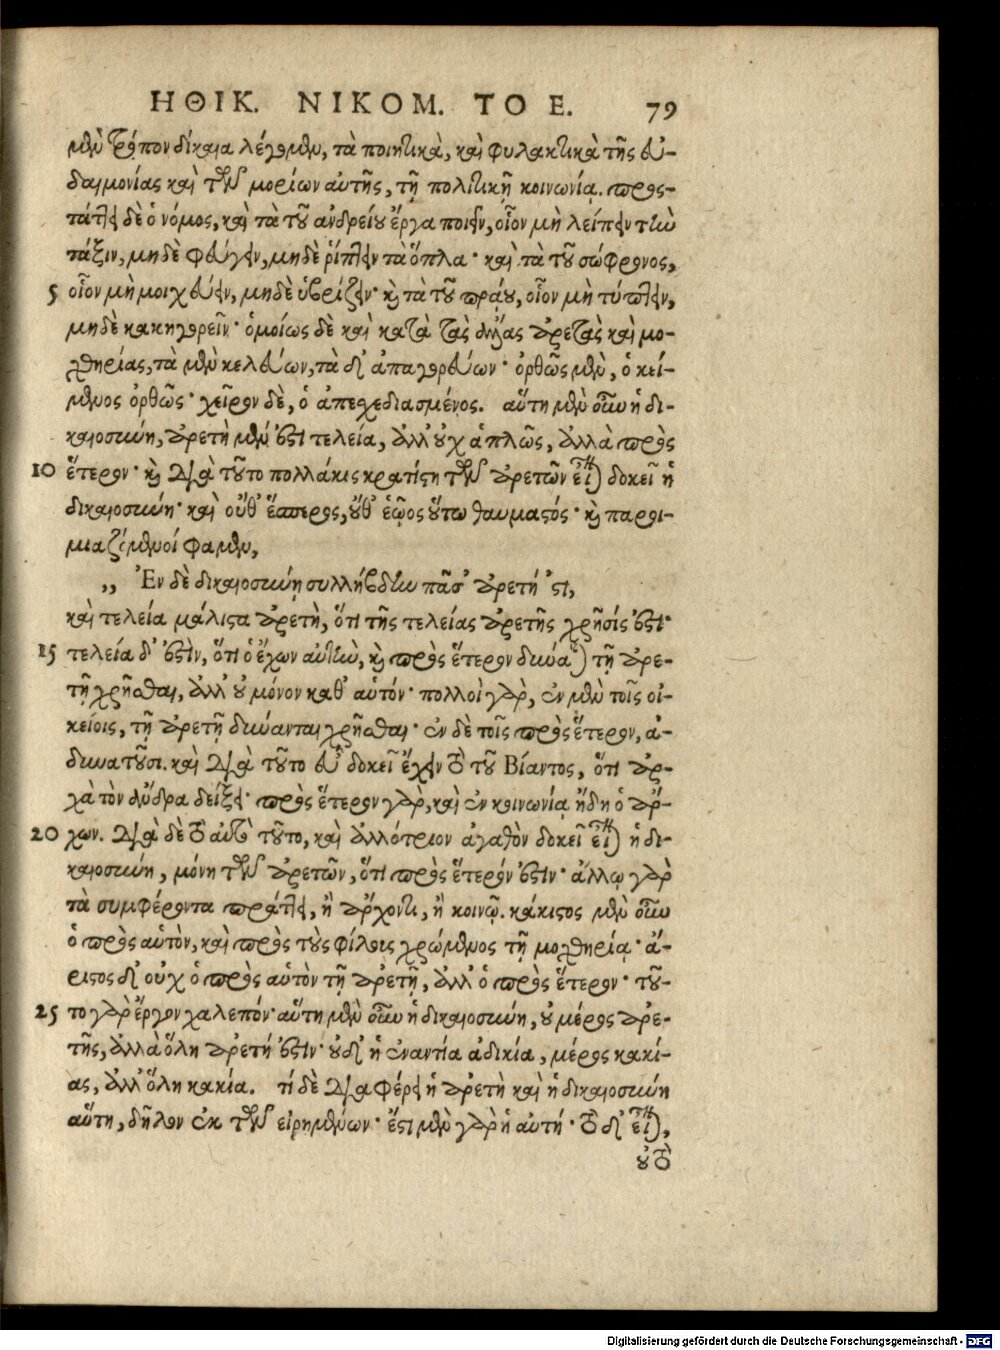 ΗΘΙΚ. ΝΙΚΟΜ. ΤΟ Ε. 79
μὲν τρόπον δίκαια λέγομεν, τὰ ποιητικὰ, καὶ φυλακτικὰ τῆς εὐ-
δαιμονίας καὶ τῶν μορίων αὐτῆς, τῇ πολιτικῇ κοινωνίᾳ. προς-
τάττει δὲ ὁ νόμος, καὶ τὰ τοῦ ἀνδρείου ἔργα ποιεῖν, οἷον μὴ λείπειν τὴν
τάξιν, μηδὲ φεύγειν, μηδὲ ῥίπτειν τὰ ὅπλα· καὶ τὰ τοῦ σώφρονος,
5 οἷον μὴ μοιχεύειν, μηδὲ ὑβρίζειν· καὶ τὰ τοῦ πράου, οἷον μὴ τύπτειν,
μηδὲ κακηγορεῖν· ὁμοίως δὲ καὶ κατὰ τὰς ἄλλας ἀρετὰς καὶ μο-
χθηρίας, τὰ μὲν κελεύων, τὰ δ' ἀπαγορεύων· ὀρθῶς μὲν, ὁ κεί-
μενος ὀρθῶς· χεῖρον δὲ, ὁ ἀπεσχεδιασμένος. αὕτη μὲν οὖν ἡ δι-
καιοσύνη, ἀρετὴ μέν ἐστι τελεία, ἀλλ' οὐχ ἁπλῶς, ἀλλὰ πρὸς
10 ἕτερον· καὶ διὰ τοῦτο πολλάκις κρατίστη τῶν ἀρετῶν εἶναι δοκεῖ ἡ
δικαιοσύνη· καὶ οὔθ' ἕσπερος, οὔθ' ἑῷος οὕτω θαυμαστός· καὶ παροι-
μιαζόμενοί φαμεν,
„ Ἐν δὲ δικαιοσύνῃ συλλήβδην πᾶσ' ἀρετή 'στι,
καὶ τελεία μάλιστα ἀρετὴ, ὅτι τῆς τελείας ἀρετῆς χρῆσίς ἐστι·
15 τελεία δ' ἐστὶν, ὅτι ὁ ἔχων αὐτὴν, καὶ πρὸς ἕτερον δύναται τῇ ἀρε-
τῇ χρῆσθαι, ἀλλ' οὐ μόνον καθ' αὑτόν· πολλοὶ γὰρ, ἐν μὲν τοῖς οἰ-
κείοις, τῇ ἀρετῇ δύνανται χρῆσθαι· ἐν δὲ τοῖς πρὸς ἕτερον, ἀ-
δυνατοῦσι. καὶ διὰ τοῦτο εὖ δοκεῖ ἔχειν τὸ τοῦ Βίαντος, ὅτι ἀρ-
χὰ τὸν ἄνδρα δείξει· πρὸς ἕτερον γὰρ, καὶ ἐν κοινωνίᾳ ἤδη ὁ ἄρ-
20 χων. διὰ δὲ τὸ αὐτὸ τοῦτο, καὶ ἀλλότριον ἀγαθὸν δοκεῖ εἶναι ἡ δι-
καιοσύνη, μόνη τῶν ἀρετῶν, ὅτι πρὸς ἕτερόν ἐστιν· ἄλλῳ γὰρ
τὰ συμφέροντα πράττει, ἢ ἄρχοντι, ἢ κοινῷ. κάκιστος μὲν οὖν
ὁ πρὸς αὑτὸν, καὶ πρὸς τοὺς φίλους χρώμενος τῇ μοχθηρίᾳ· ἄ-
ριστος δ' οὐχ ὁ πρὸς αὑτὸν τῇ ἀρετῇ, ἀλλ' ὁ πρὸς ἕτερον· τοῦ-
25 το γὰρ ἔργον χαλεπόν· αὕτη μὲν οὖν ἡ δικαιοσύνη, οὐ μέρος ἀρε-
τῆς, ἀλλὰ ὅλη ἀρετή ἐστιν· οὐδ' ἡ ἐναντία ἀδικία, μέρος κακί-
ας, ἀλλ' ὅλη κακία. τί δὲ διαφέρει ἡ ἀρετὴ καὶ ἡ δικαιοσύνη
αὕτη, δῆλον ἐκ τῶν εἰρημένων· ἔστι μὲν γὰρ ἡ αὐτή· τὸ δ' εἶναι,
οὐ τὸ
Digitalisierung gefördert durch die Deutsche Forschungsgemeinschaft - DFG